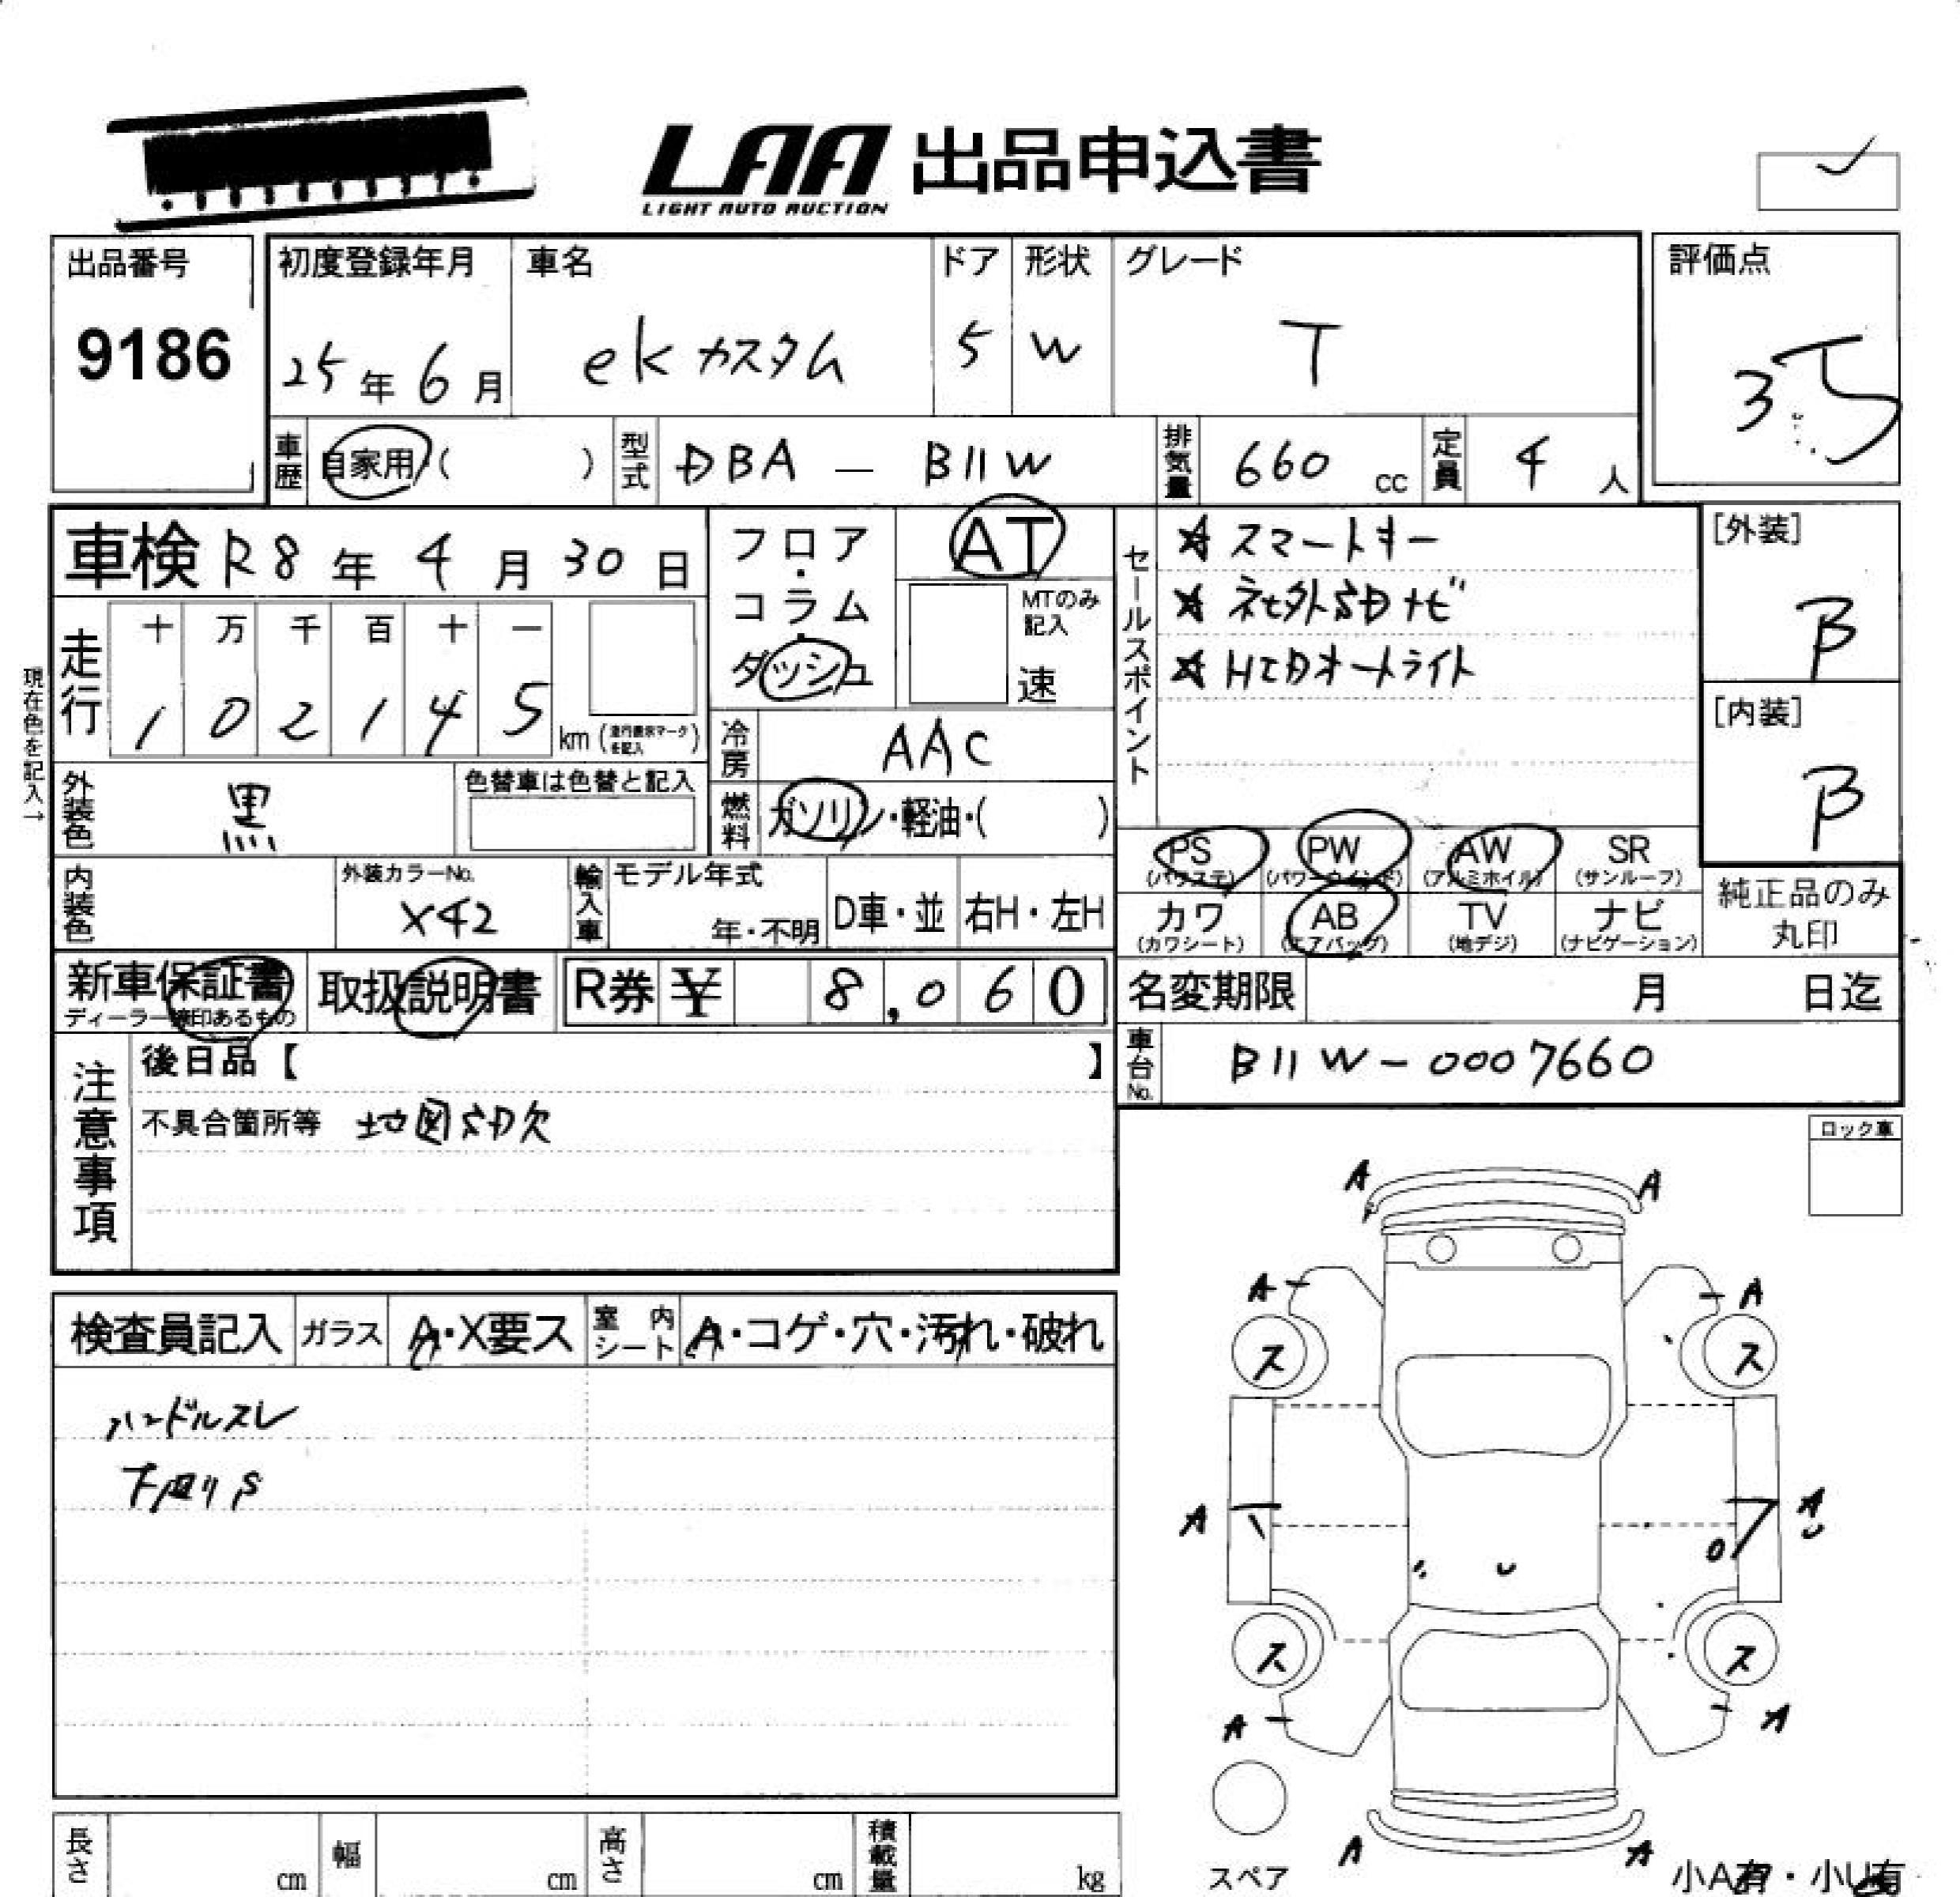 LAA 出品申込書
LIGHT AUTO AUCTION
出品番号
9186
初度登録年月
25年6月
車名
ekカスタム
ドア
5
形状
W
グレード
T
評価点
3.5
車歴
自家用・( )
型式
DBA - B11W
排気量
660 cc
定員
4 人
車検 R8年4月30日
走行
十 万 千 百 十 一
1 0 2 1 4 5
km
フロア・コラム・ダッシュ
AT
MTのみ記入
速
冷房
AAC
燃料
ガソリン・軽油・( )
セールスポイント
スマートキー
社外SDナビ
HIDオートライト
[外装]
B
[内装]
B
現在色を記入→
外装色
黒
色替車は色替と記入
内装色
外装カラーNo.
X42
輸入車
モデル年式
年・不明
D車・並
右H・左H
PS
(パワステ)
PW
(パワーウインド)
AW
(アルミホイル)
SR
(サンルーフ)
カワ
(カワシート)
AB
(エアバッグ)
TV
(地デジ)
ナビ
(ナビゲーション)
純正品のみ
丸印
新車保証書
取扱説明書
R券 ¥ 8,060
名変期限 月 日迄
車台No.
B11W-0007660
注意事項
後日品【 】
不具合箇所等 地図SD欠
ロック車
検査員記入
ガラス
A・X要ス
室内シート
A・コゲ・穴・汚れ・破れ
ハンドルスレ
下廻りS
A A
A A
ス ス
A A
U
ス ス
A A
A A
スペア
小A有・小U有
長さ cm
幅 cm
高さ cm
積載量 kg